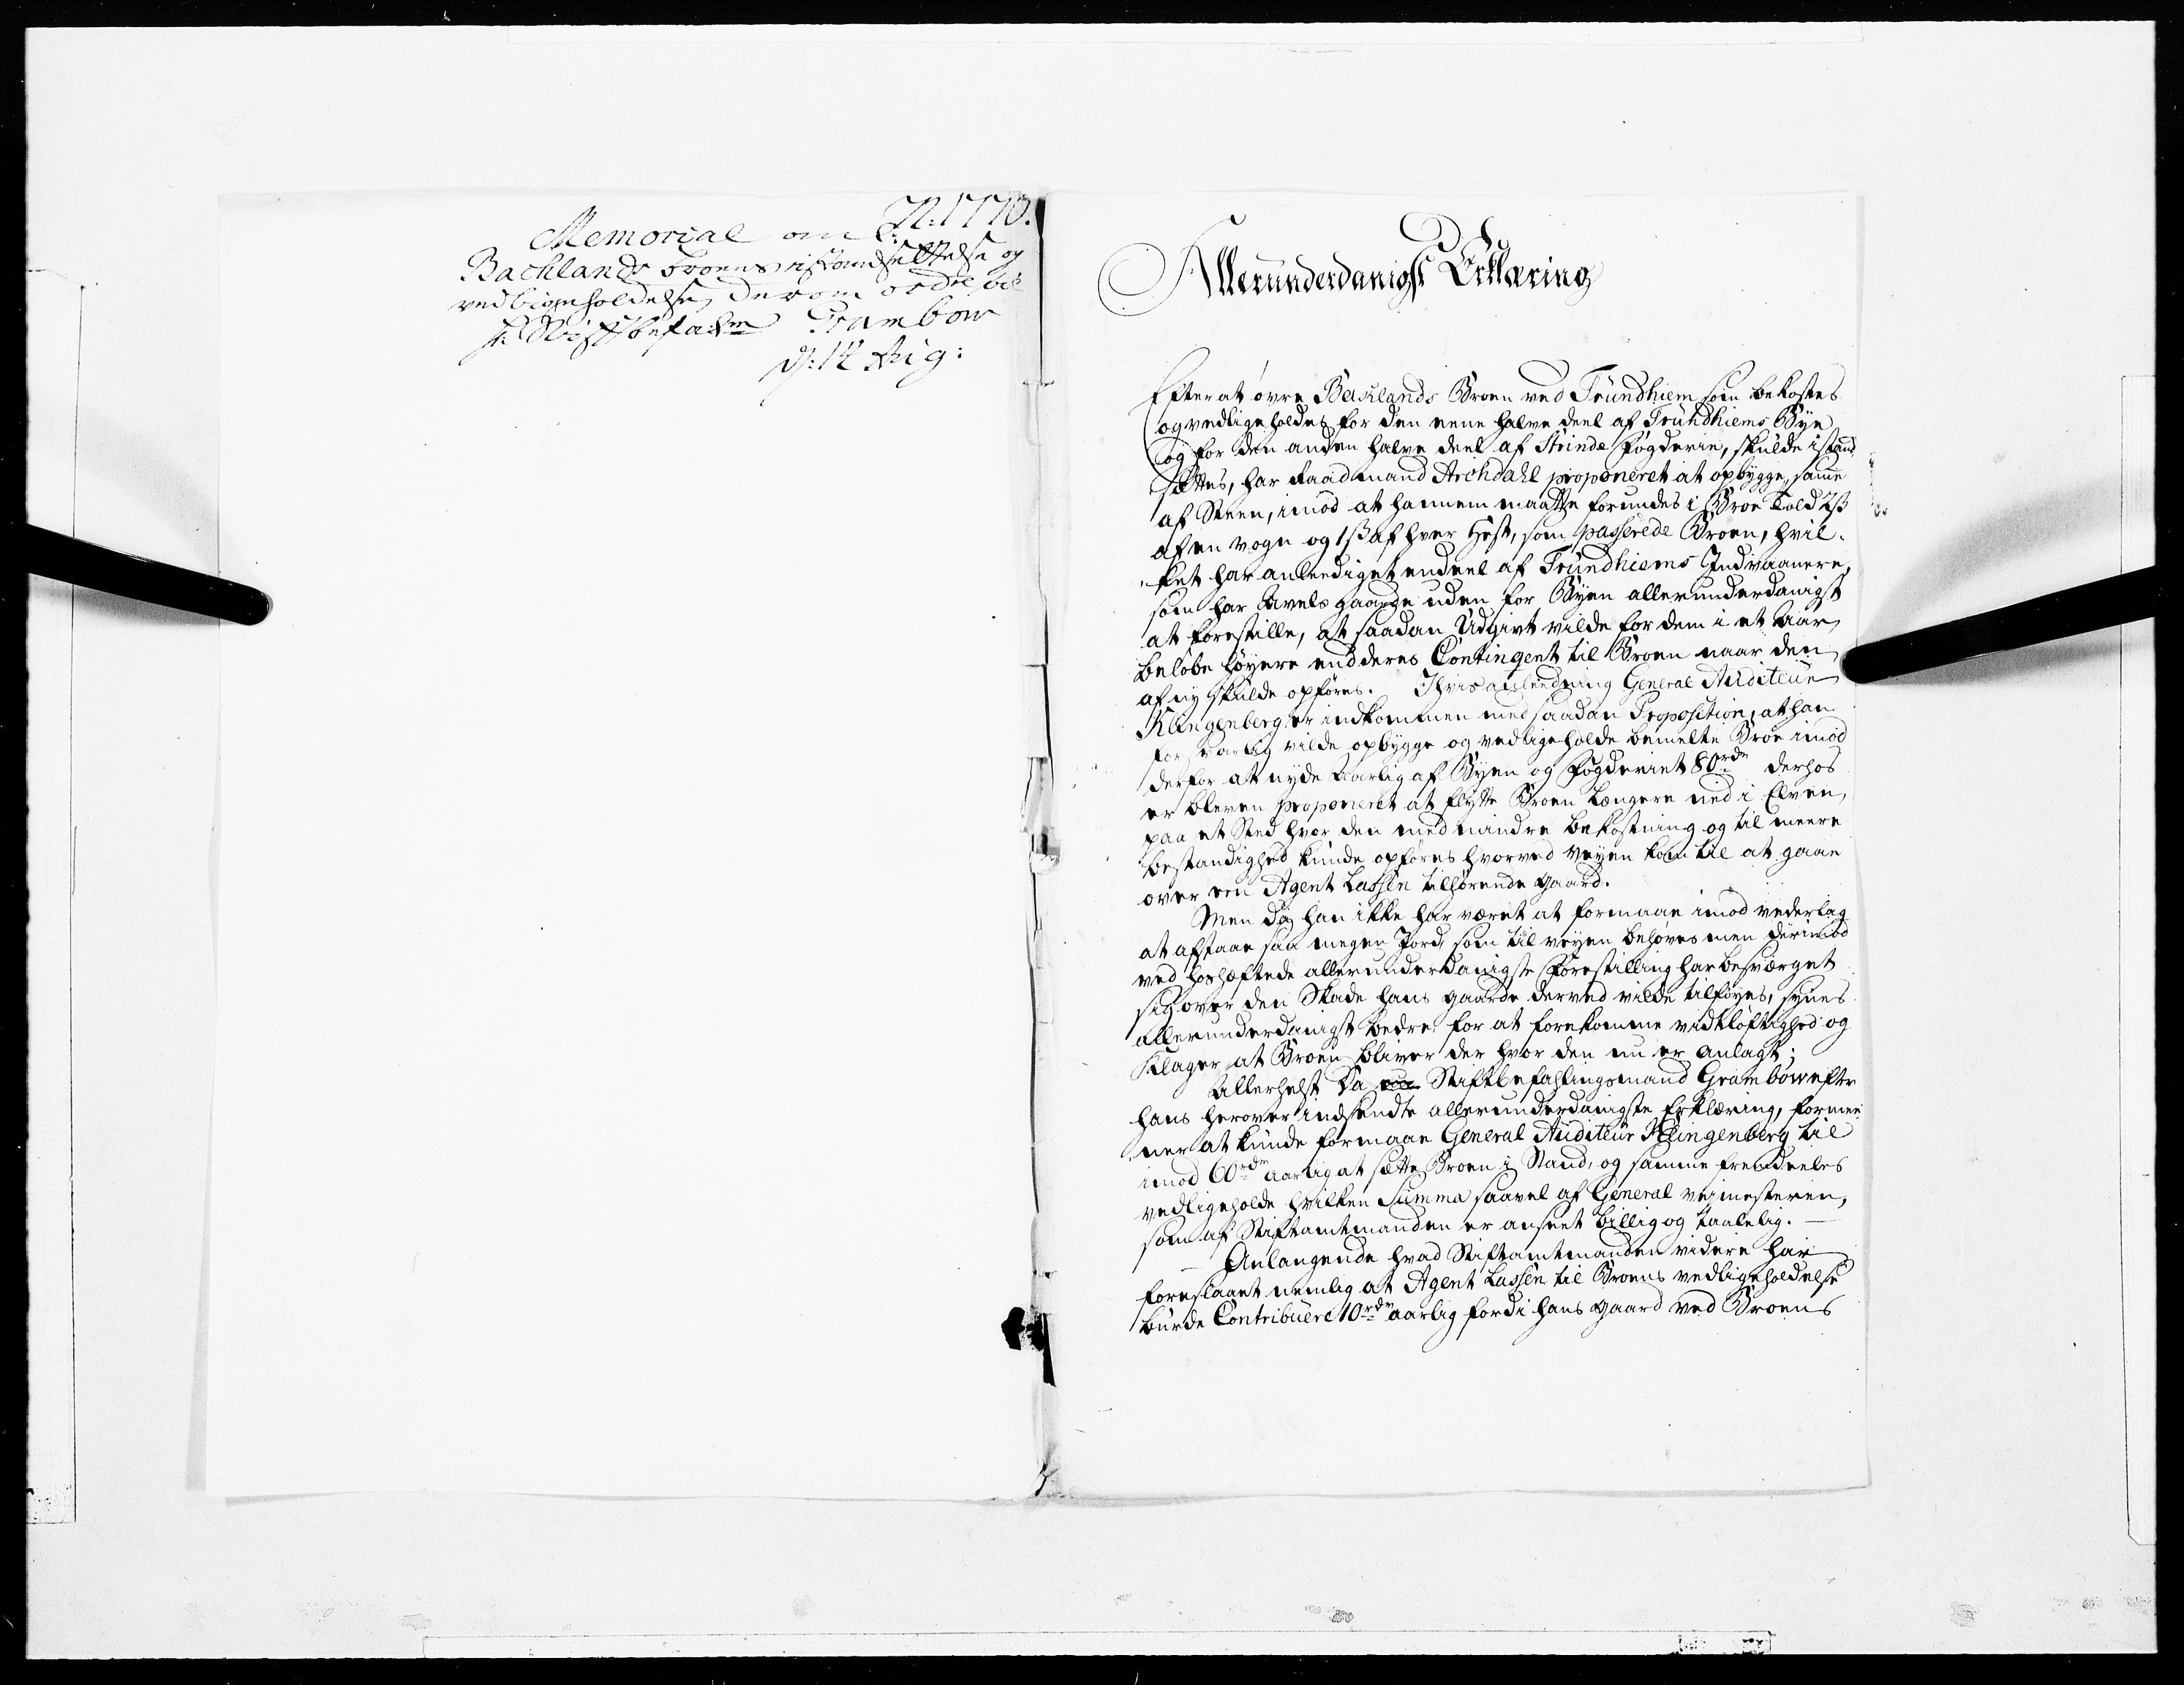 N: 1770.
Memorial om
Bachlands broens istandsettelse og
vedligeholdelse, derom ordre til
H: Stiftbefalm Grambow
d: 14 Aug:
Allerunderdanigst Erklæring
Efter at øvre Baklands Broen ved Trundhiem som bekostes
og vedligeholdes for den eene halve deel af Trundhiems Bye
og for den anden halve deel af Strinde Fogderie, skulde istand
sættes, har Raadmand Archdahl proponeret at opbygge samme
af Steen, imod at hannem maatte forundes i Broe Told 2 ß
af en vogn og 1 ß af hver Hest, som passerede Broen, hvil-
ket har anleediget endeel af Trundhiems Indvaanere,
som har Avels gaarde uden for Byen allerunderdanigst
at forestille, at saadan Udgivt vilde for dem i et Aar
beløbe høyere end deres Contingent til Broen naar den
af ny skulde opføres. I hvis anleedning General Auditeur
Klingenberg er indkommen med saadan Proposition, at han
forsvarlig vilde opbygge og vedligeholde bemelte Broe imod
derfor at nyde Aarlig af Byen og Fogderiet 80 rdr derhos
er bleven proponeret at flytte Broen længere ned i Elven,
paa et Sted hvor den med mindre bekostning og til meere
bestandighed kunde opføres hvorved Veyen kom til at gaae
over een Agent Lassen tilhørende gaard.
Men da han ikke har været at formaae imod vederlag
at afstaae saa megen Jord, som til veyen behøves men derimod
ved hoshæftede allerunderdanigste Forestilling har besværget
sig over den Skade hans gaarde derved vilde tilføyes, synes
allerunderdanigst bedre for at forekomme vidtløftighed og
Klager at Broen bliver der hvor den nu er anlagt;
Allerhelst da Stiftbefahlingsmand Grambow efter
hans herover indsendte allerunderdanigste Erklæring, formee-
ner at kunde formaae General Auditeur Klingenberg til
imod 60 rdr aarlig at sætte Broen i Stand, og samme fremdeeles
vedligeholde hvilken Summa saavel af General veimesteren,
som af Stiftamtmanden er anseet billig og taalelig.
Anlangende hvad Stiftamtmanden videre har
foreslaaet nemlig at Agent Lassen til Broens vedligeholdelse
burde Contribuere 10 rdr aarlig fordi hans gaard ved Broens